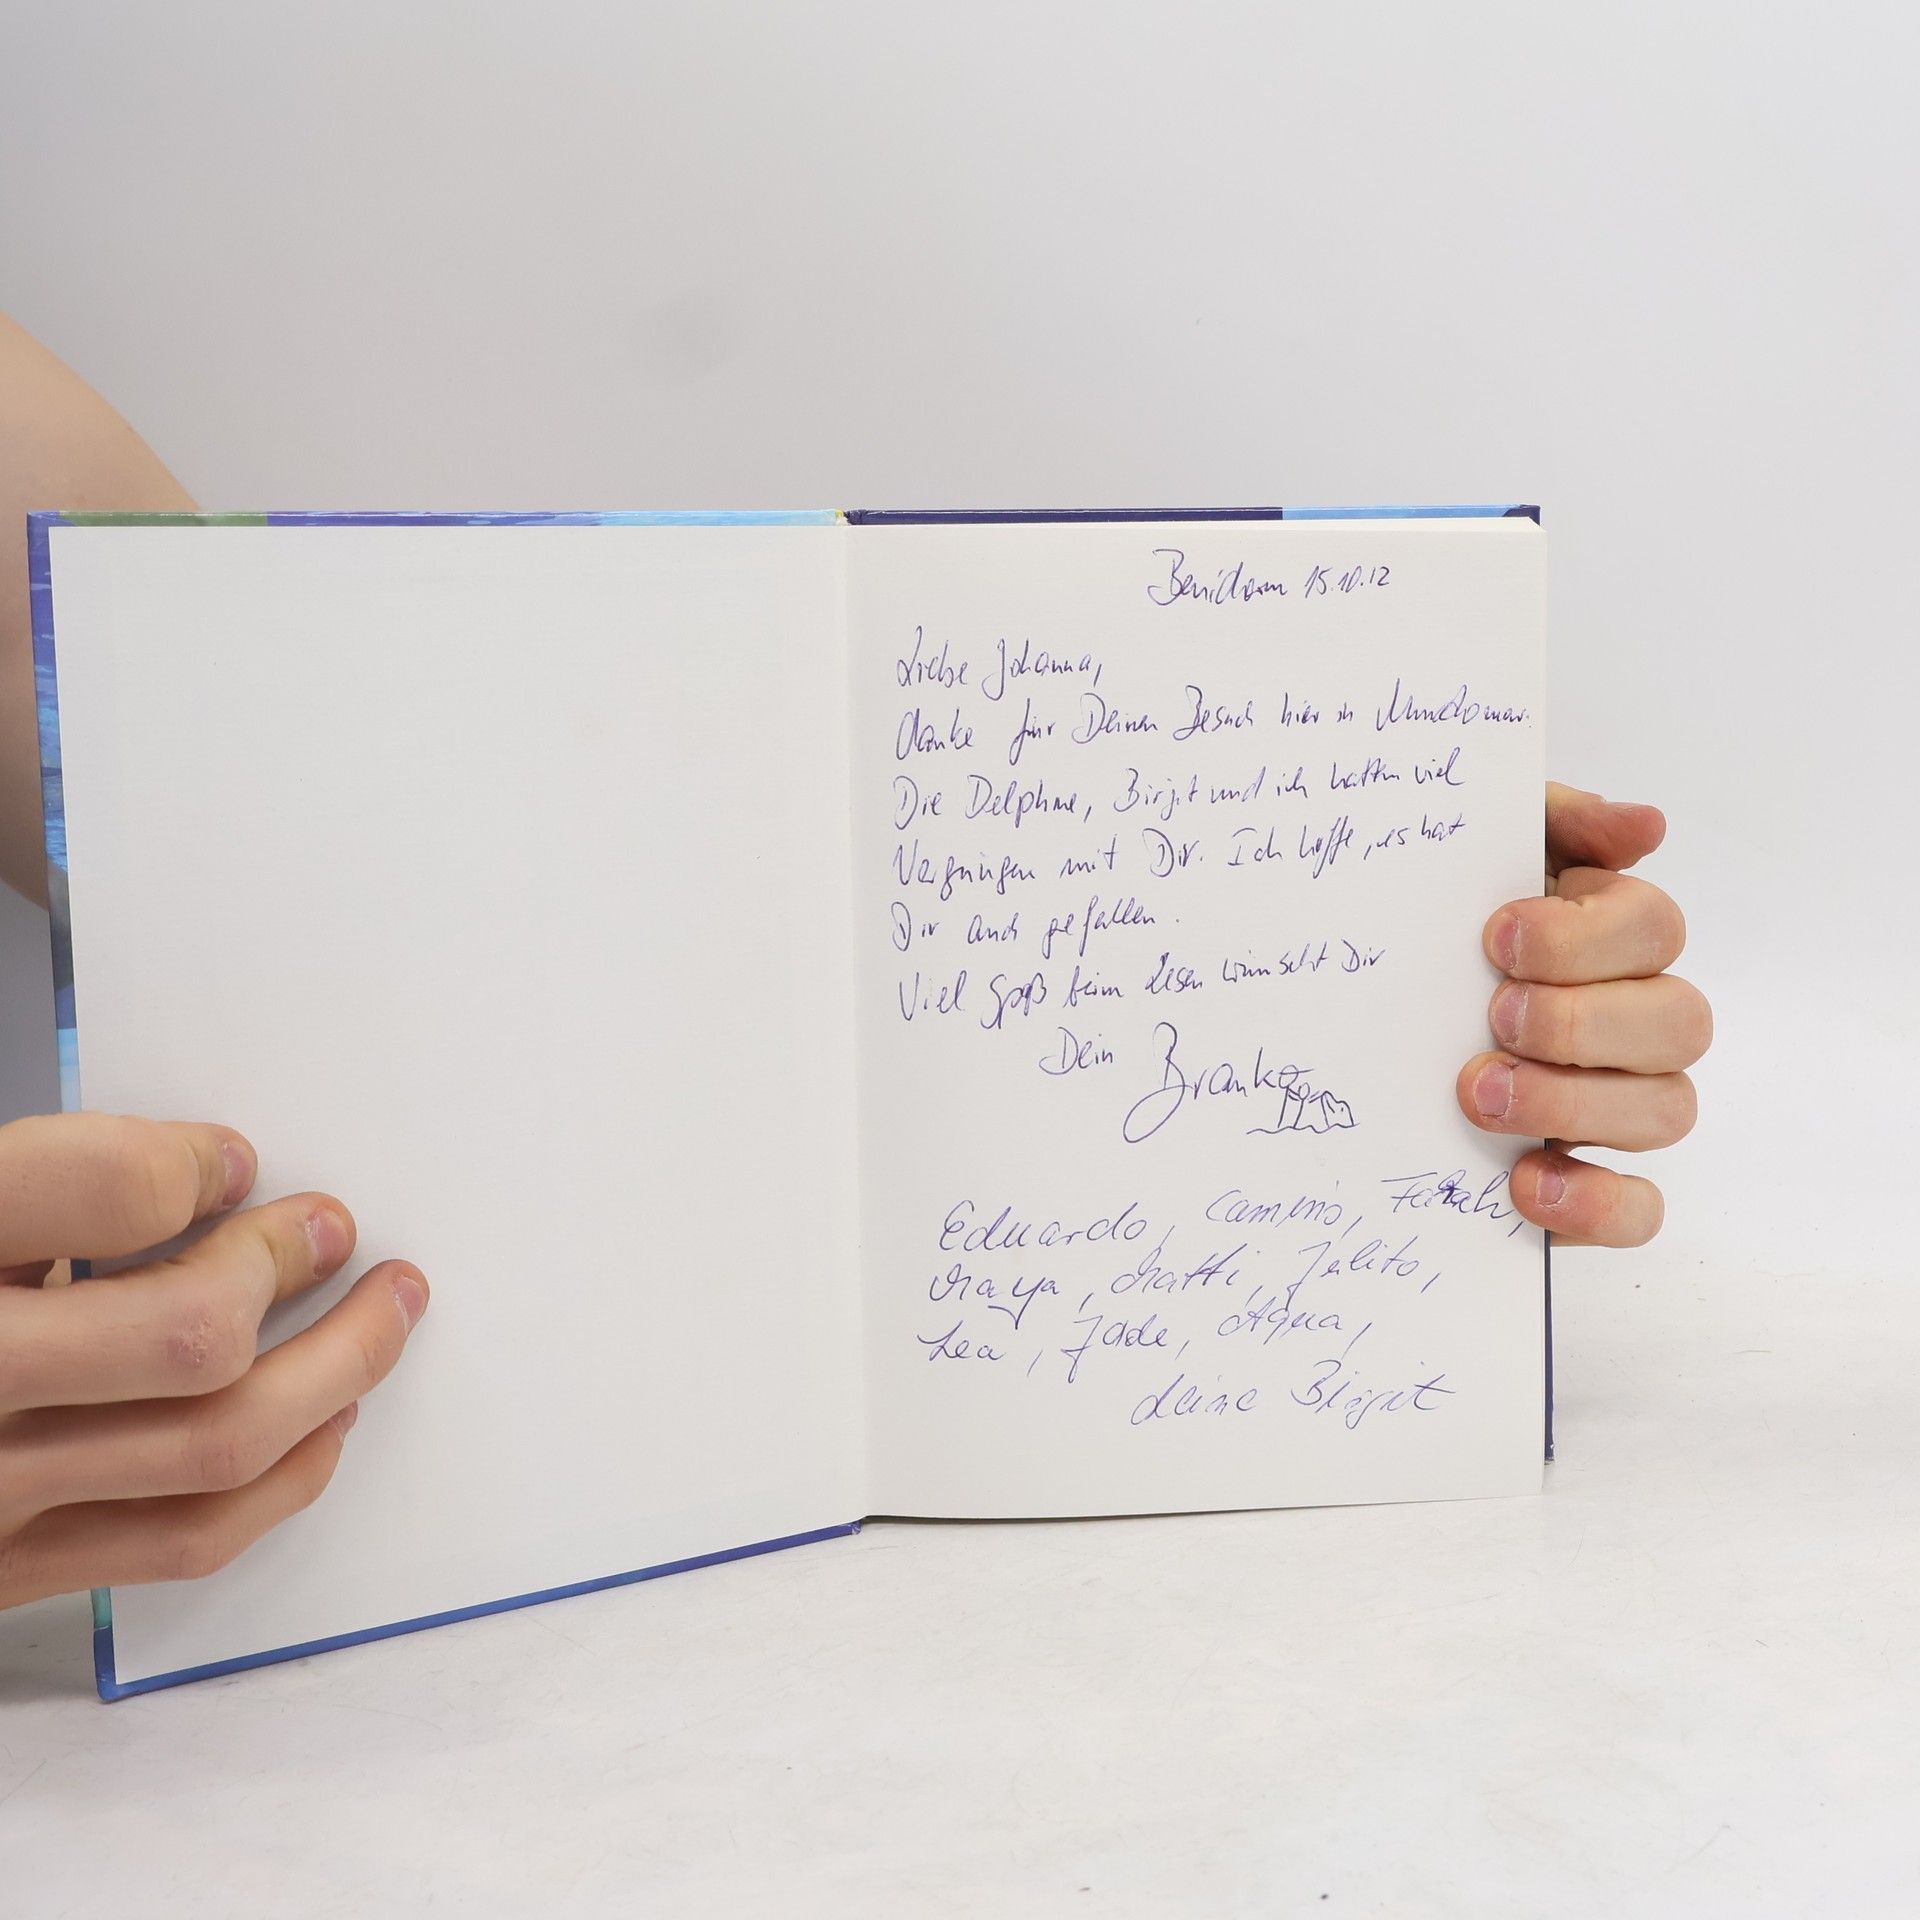 Benidorm 15.10.12
Liebe Johanna,
danke für Deinen Besuch hier in Mundomar.
Die Delphine, Birgit und ich hatten viel
Vergnügen mit Dir. Ich hoffe, es hat
Dir auch gefallen.
Viel Spaß beim Lesen wünscht Dir
Dein Branko
Eduardo, Camino, Farah,
Maya, Matti, Julito,
Lea, Jade, Aqua,
deine Birgit